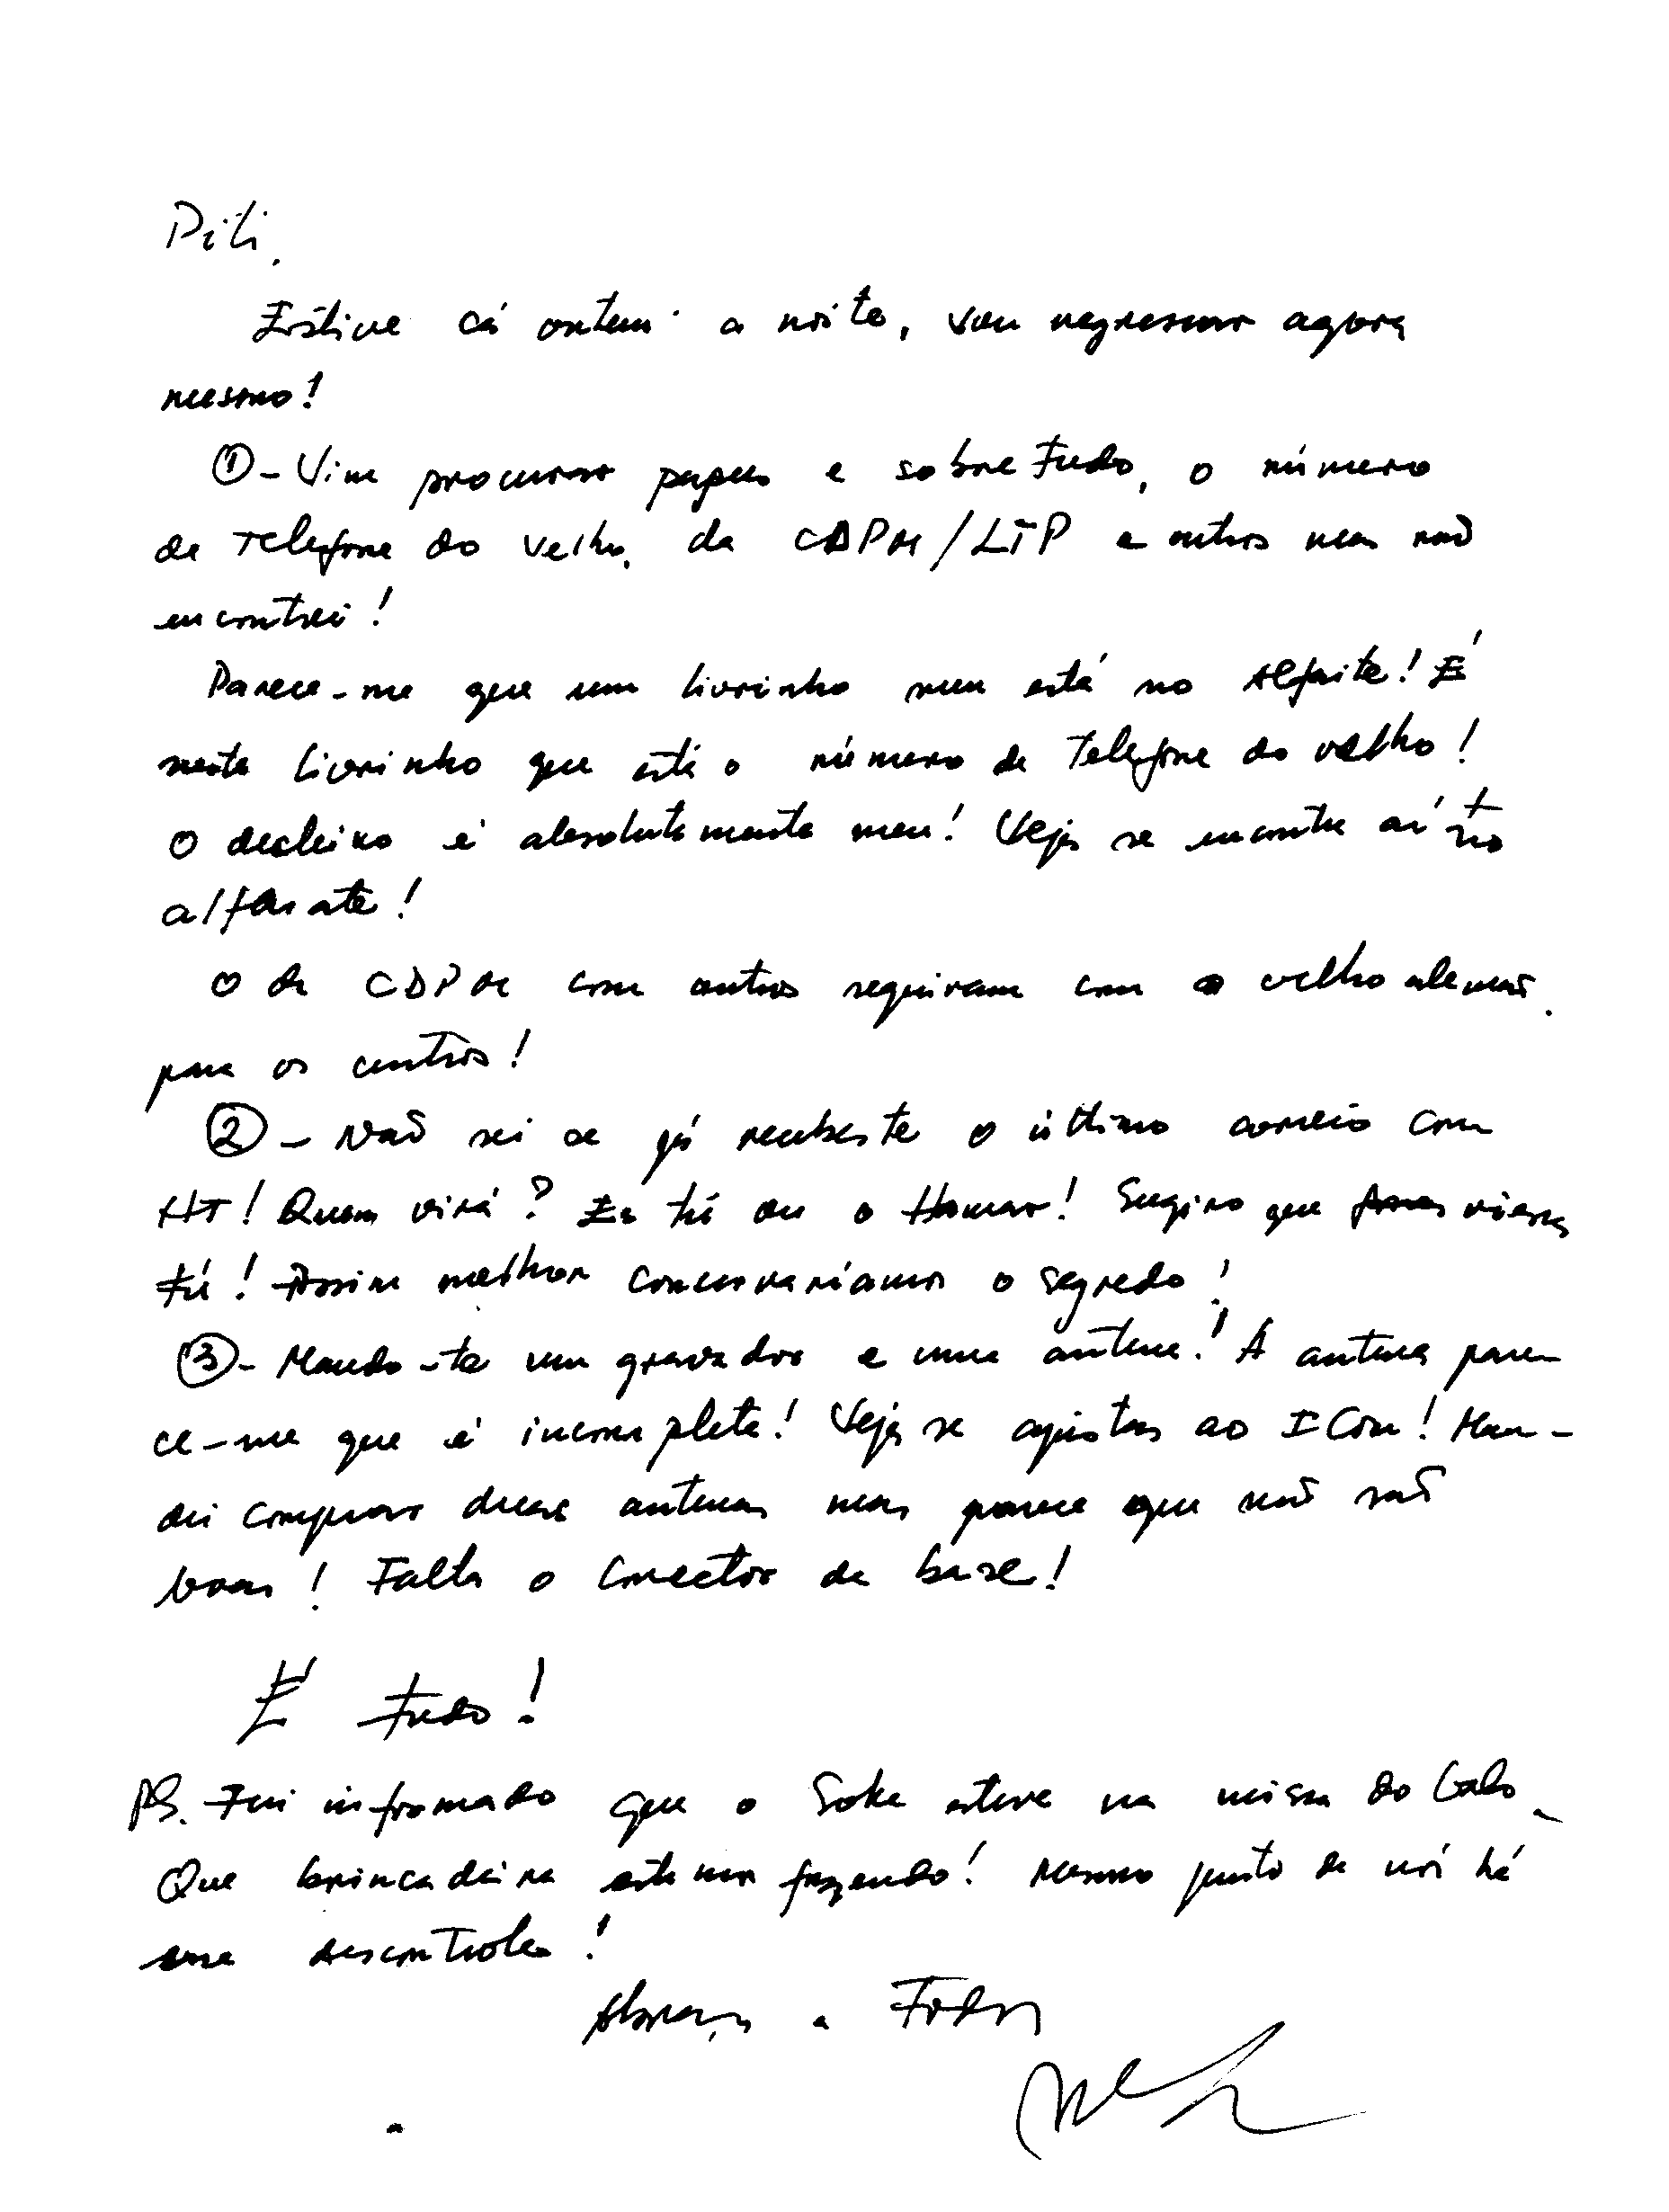 Piti,
Estive cá ontem a noite, vou regressar agora
mesmo!
① - Vim procurar papeis e sobretudo, o número
de telefone do velho, da CDPM/LTP e outros mas não
encontrei!
Parece-me que um livrinho meu está no Alfaite! É
neste livrinho que está o número de telefone do velho!
O desleixo é absolutamente meu! Veja se encontra aí no
alfaiate!
O da CDPM com outros seguiram com o velho alemão
para os centros!
② - Não sei se já recebeste o último correio com
HT! Quem virá? És tú ou o Homar! Sugiro que viesses
tú! Assim melhor conservaríamos o segredo!
③ - Mando-te um gravador e uma antena! A antena pare-
ce-me que é incompleta! Veja se ajustas ao ICom! Man-
dei comprar duas antenas mas parece que não são
boas! Falta o conector de base!
É tudo!
PS. Fui informado que o Soke esteve na missa do Galo.
Que brincadeira estamos fazendo! Mesmo junto de nós há
descontroles!
Abraços a Todos